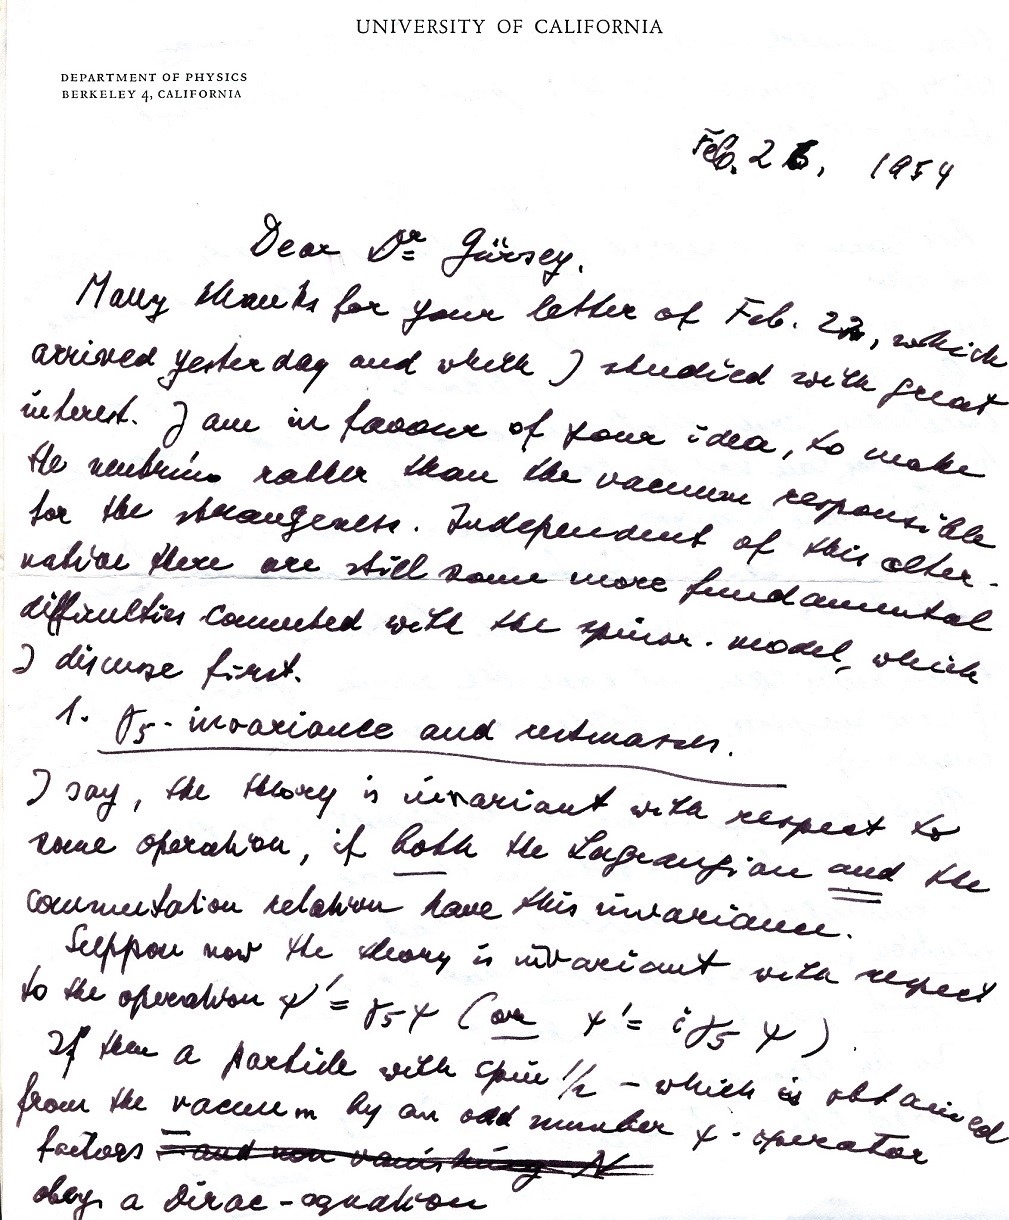 UNIVERSITY OF CALIFORNIA
DEPARTMENT OF PHYSICS
BERKELEY 4, CALIFORNIA
Feb. 26, 1954
Dear Dr Gürsey.
Many thanks for your letter of Feb. 22, which
arrived yesterday and which I studied with great
interest. I am in favour of your idea, to make
the neutrino rather than the vacuum responsible
for the strangeness. Independent of this alter-
native there are still some more fundamental
difficulties connected with the spinor-model, which
I discuss first.
1. γ5-invariance and restmasses.
I say, the theory is invariant with respect to
some operation, if both the Lagrangian and the
commutation relation have this invariance.
Suppose now the theory is invariant with respect
to the operation ψ' = γ5 ψ (or ψ' = i γ5 ψ).
If then a particle with spin 1/2 – which is obtained
from the vacuum by an odd number ψ-operator
factors – and non vanishing
obeys a Dirac-equation